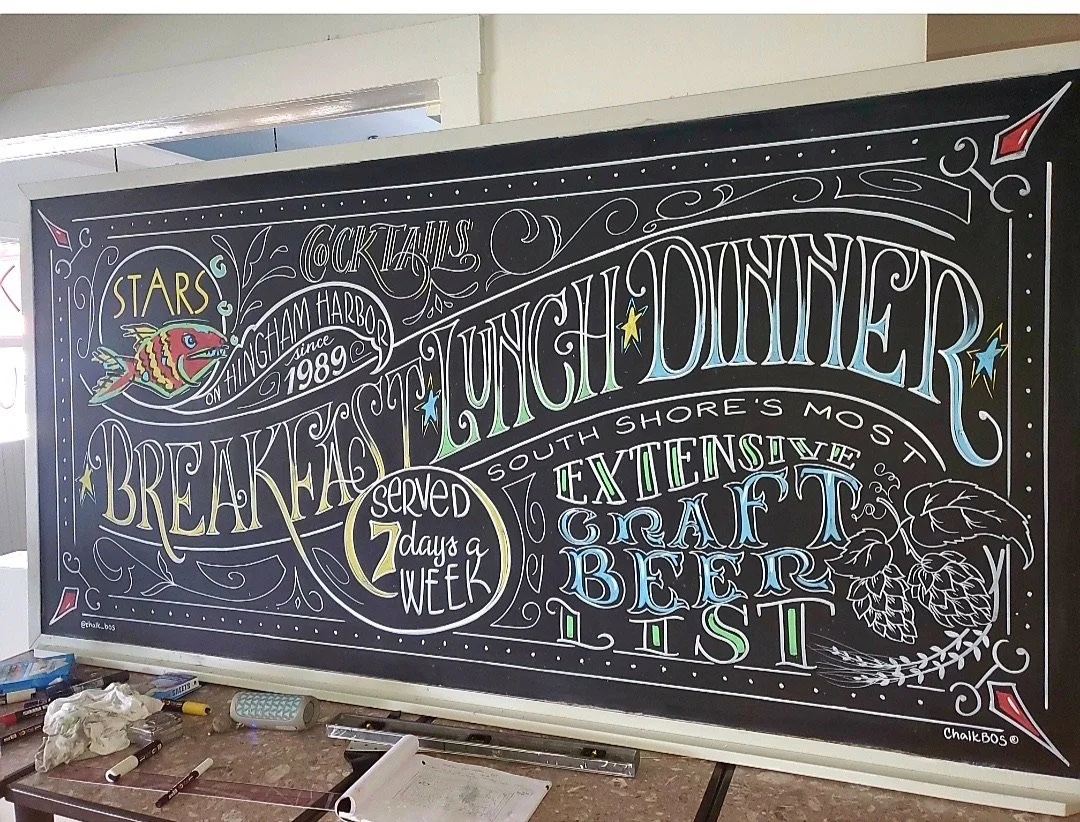 STARS
ON HINGHAM HARBOR
since
1989
COCKTAILS
BREAKFAST LUNCH DINNER
SERVED
7 days a
WEEK
SOUTH SHORE'S MOST
EXTENSIVE
CRAFT
BEER
LIST
@chalk_bos
ChalkBOS®